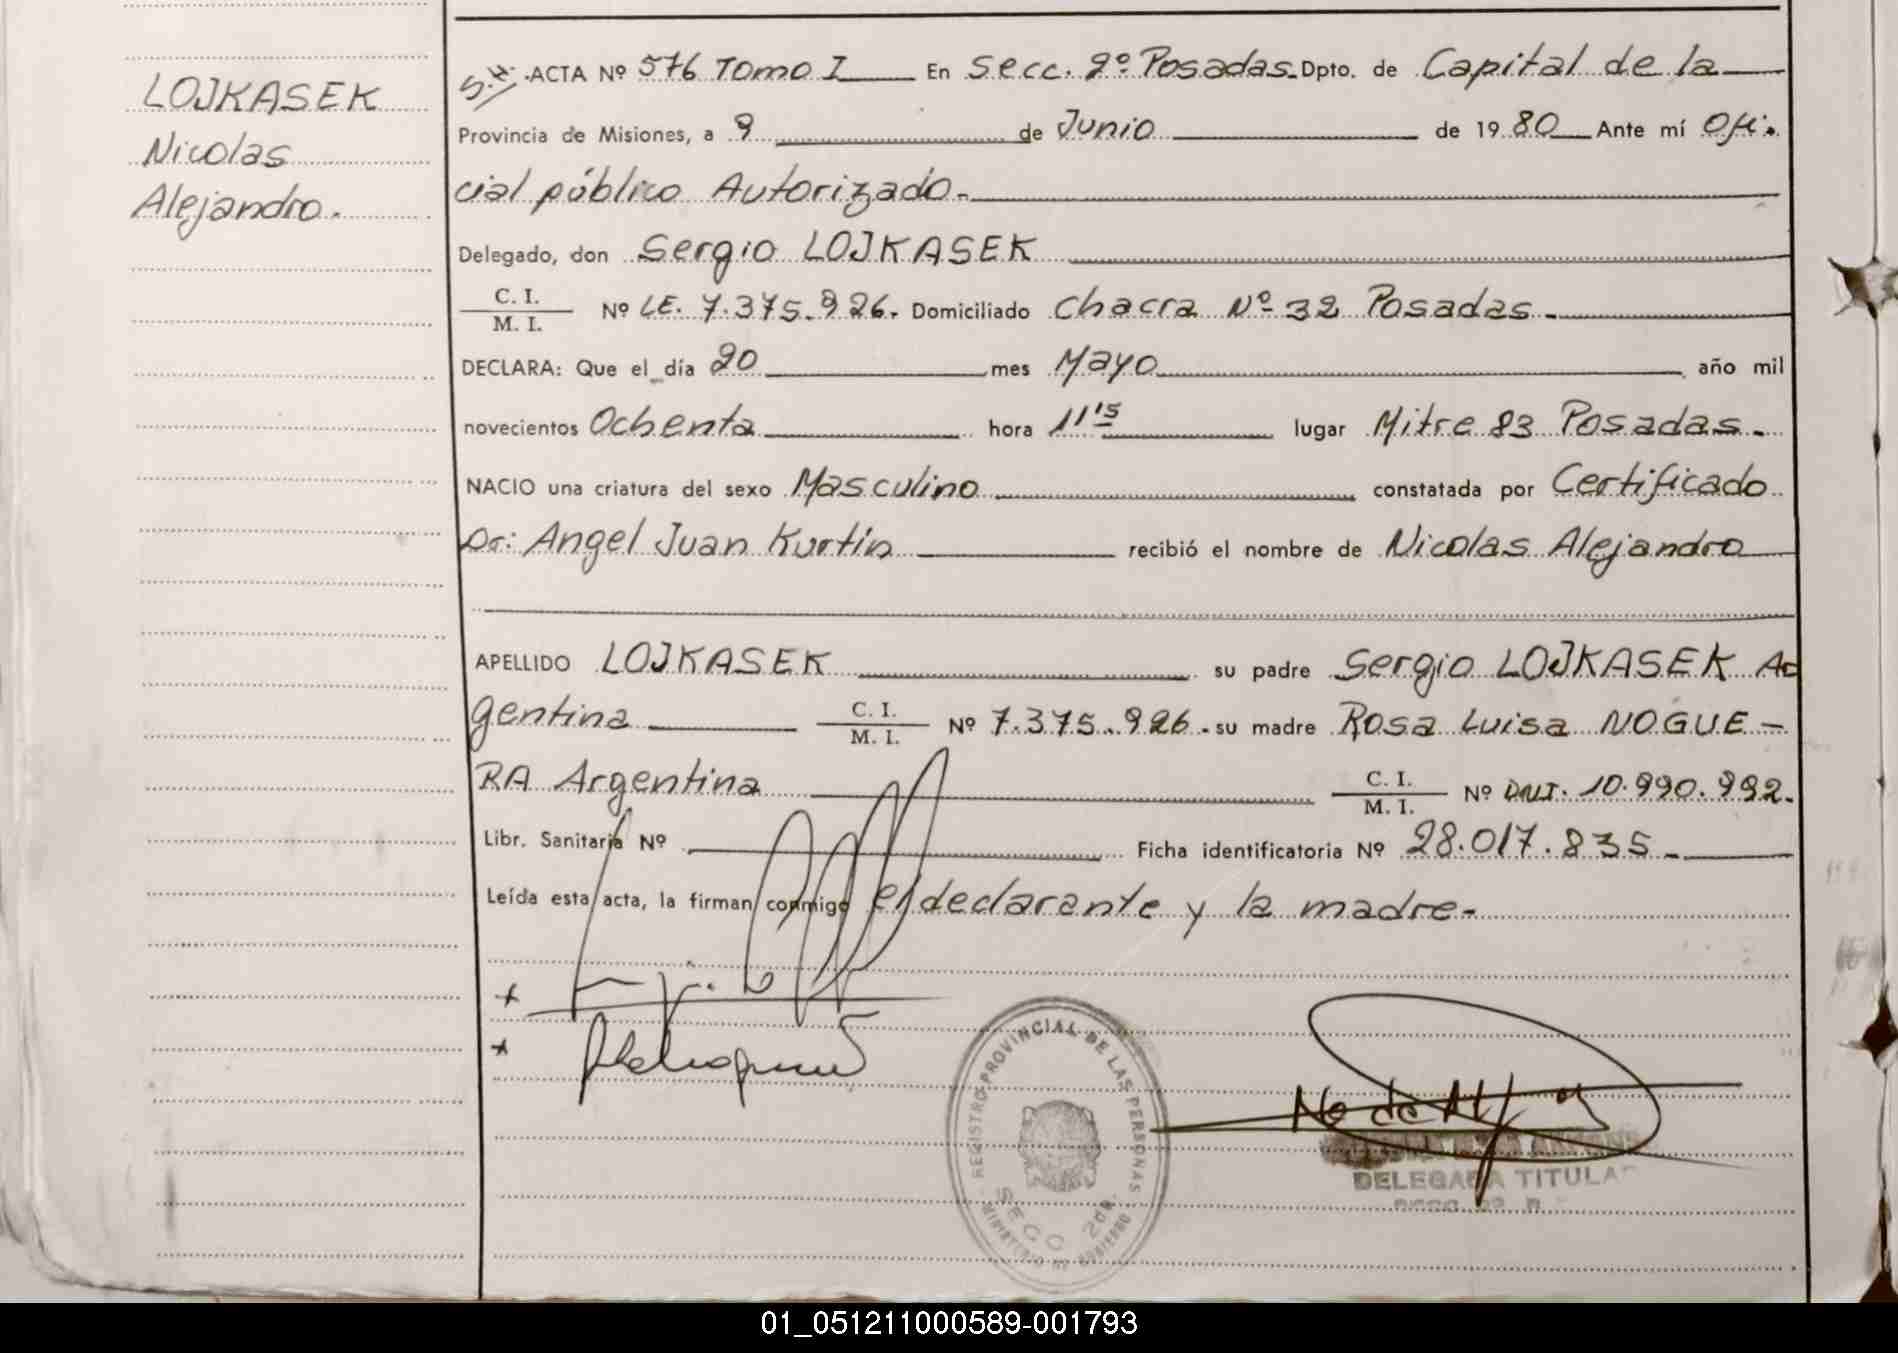 LOJKASEK
Nicolas
Alejandro.
S.H. ACTA Nº 576 Tomo I En Secc. 2º Posadas Dpto. de Capital de la
Provincia de Misiones, a 9 de Junio de 1980 Ante mí Ofi-
cial público Autorizado.-
Delegado, don Sergio LOJKASEK
C. I.
M. I. Nº LE. 7.375.926. Domiciliado Chacra Nº 32 Posadas.-
DECLARA: Que el día 20 mes Mayo año mil
novecientos Ochenta hora 11'15 lugar Mitre 83 Posadas.-
NACIO una criatura del sexo Masculino constatada por Certificado
Dr: Angel Juan Kurtin recibió el nombre de Nicolas Alejandro
APELLIDO LOJKASEK su padre Sergio LOJKASEK Ar
gentina C. I.
M. I. Nº 7.375.926. su madre Rosa Luisa NOGUE-
RA Argentina C. I.
M. I. Nº DNI. 10.990.992.
Libr. Sanitaria Nº Ficha identificatoria Nº 28.017.835.-
Leída esta acta, la firman conmigo el declarante y la madre-
REGISTRO PROVINCIAL DE LAS PERSONAS
SECC 2da.
MINISTERIO DE GOBIERNO
DELEGADA TITULAR
01_051211000589-001793